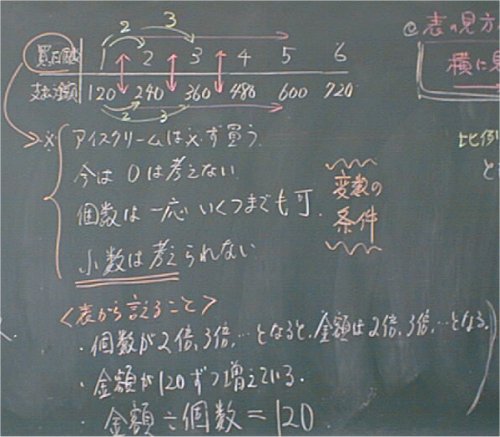 2 3
買う個数 1 2 3 4 5 6
支払う金額 120 240 360 480 600 720
2 3
@表の見方
横に見
※ アイスクリームは必ず買う.
今は 0は考えない
個数は一応いくつまでも可.
小数は考えられない
変数の
条件
比例
と
<表から言えること>
・個数が2倍,3倍,…となると,金額は2倍,3倍,…となる.
・金額が120ずつ増えている.
・金額÷個数=120